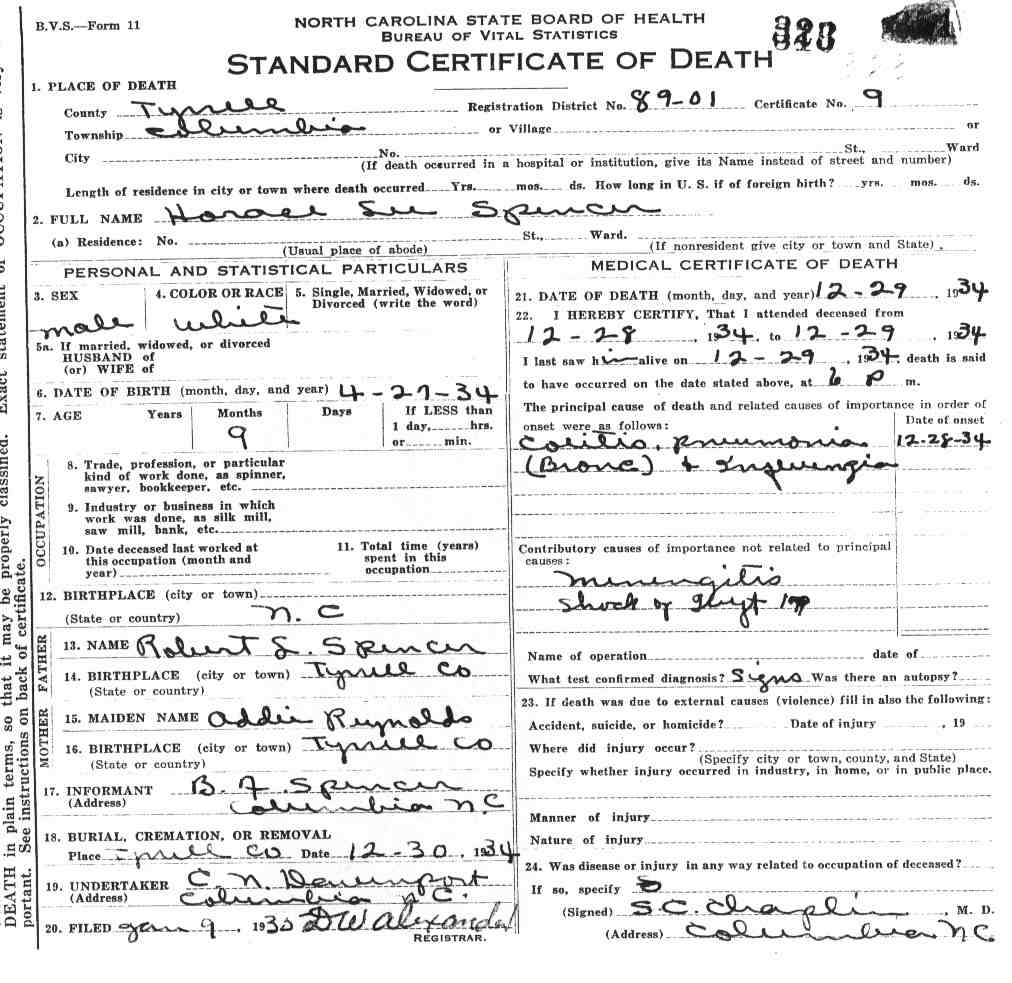 B.V.S.—Form 11
NORTH CAROLINA STATE BOARD OF HEALTH
BUREAU OF VITAL STATISTICS
STANDARD CERTIFICATE OF DEATH
1. PLACE OF DEATH
County Tyrrell Registration District No. 89-01 Certificate No. 9
Township Columbia or Village or
City No. St., Ward
(If death occurred in a hospital or institution, give its Name instead of street and number)
Length of residence in city or town where death occurred Yrs. mos. ds. How long in U. S. if of foreign birth? yrs. mos. ds.
2. FULL NAME Horace Lee Spencer
(a) Residence: No. St., Ward.
(Usual place of abode) (If nonresident give city or town and State)
PERSONAL AND STATISTICAL PARTICULARS
3. SEX
male
4. COLOR OR RACE
white
5. Single, Married, Widowed, or
Divorced (write the word)
5a. If married, widowed, or divorced
HUSBAND of
(or) WIFE of
6. DATE OF BIRTH (month, day, and year) 4-27-34
7. AGE Years Months Days If LESS than
9 1 day, hrs.
or min.
OCCUPATION
8. Trade, profession, or particular
kind of work done, as spinner,
sawyer, bookkeeper, etc.
9. Industry or business in which
work was done, as silk mill,
saw mill, bank, etc.
10. Date deceased last worked at
this occupation (month and
year)
11. Total time (years)
spent in this
occupation
12. BIRTHPLACE (city or town)
(State or country) N. C
FATHER
13. NAME Robert L. Spencer
14. BIRTHPLACE (city or town) Tyrrell Co
(State or country)
MOTHER
15. MAIDEN NAME Addie Reynolds
16. BIRTHPLACE (city or town) Tyrrell Co
(State or country)
17. INFORMANT B. F. Spencer
(Address) Columbia N. C
18. BURIAL, CREMATION, OR REMOVAL
Place Tyrrell Co Date 12-30, 1934
19. UNDERTAKER C. N. Davenport
(Address) Columbia N C.
20. FILED Jan 9, 1935 D W Alexander
REGISTRAR.
MEDICAL CERTIFICATE OF DEATH
21. DATE OF DEATH (month, day, and year) 12-29, 1934
22. I HEREBY CERTIFY, That I attended deceased from
12-28, 1934, to 12-29, 1934
I last saw him alive on 12-29, 1934, death is said
to have occurred on the date stated above, at 6 P m.
The principal cause of death and related causes of importance in order of
onset were as follows:
Date of onset
Colitis, pneumonia 12-28-34
(Bronc) + Influengia
Contributory causes of importance not related to principal
causes:
Meningitis
Shock of
Name of operation date of
What test confirmed diagnosis? Signs Was there an autopsy?
23. If death was due to external causes (violence) fill in also the following:
Accident, suicide, or homicide? Date of injury , 19
Where did injury occur?
(Specify city or town, county, and State)
Specify whether injury occurred in industry, in home, or in public place.
Manner of injury
Nature of injury
24. Was disease or injury in any way related to occupation of deceased?
If so, specify
(Signed) S. C. Chaplin, M. D.
(Address) Columbia N. C.
DEATH in plain terms, so that it may be properly classified. Exact statement of OCCUPATION is
portant. See instructions on back of certificate.